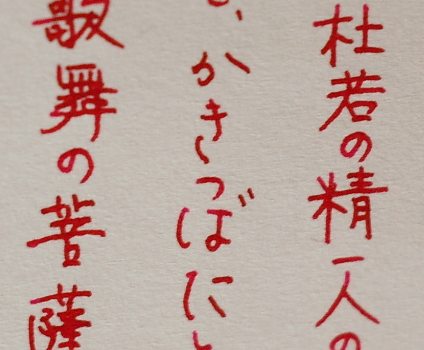 杜若の精一人の
、かきつばに
歌舞の菩薩